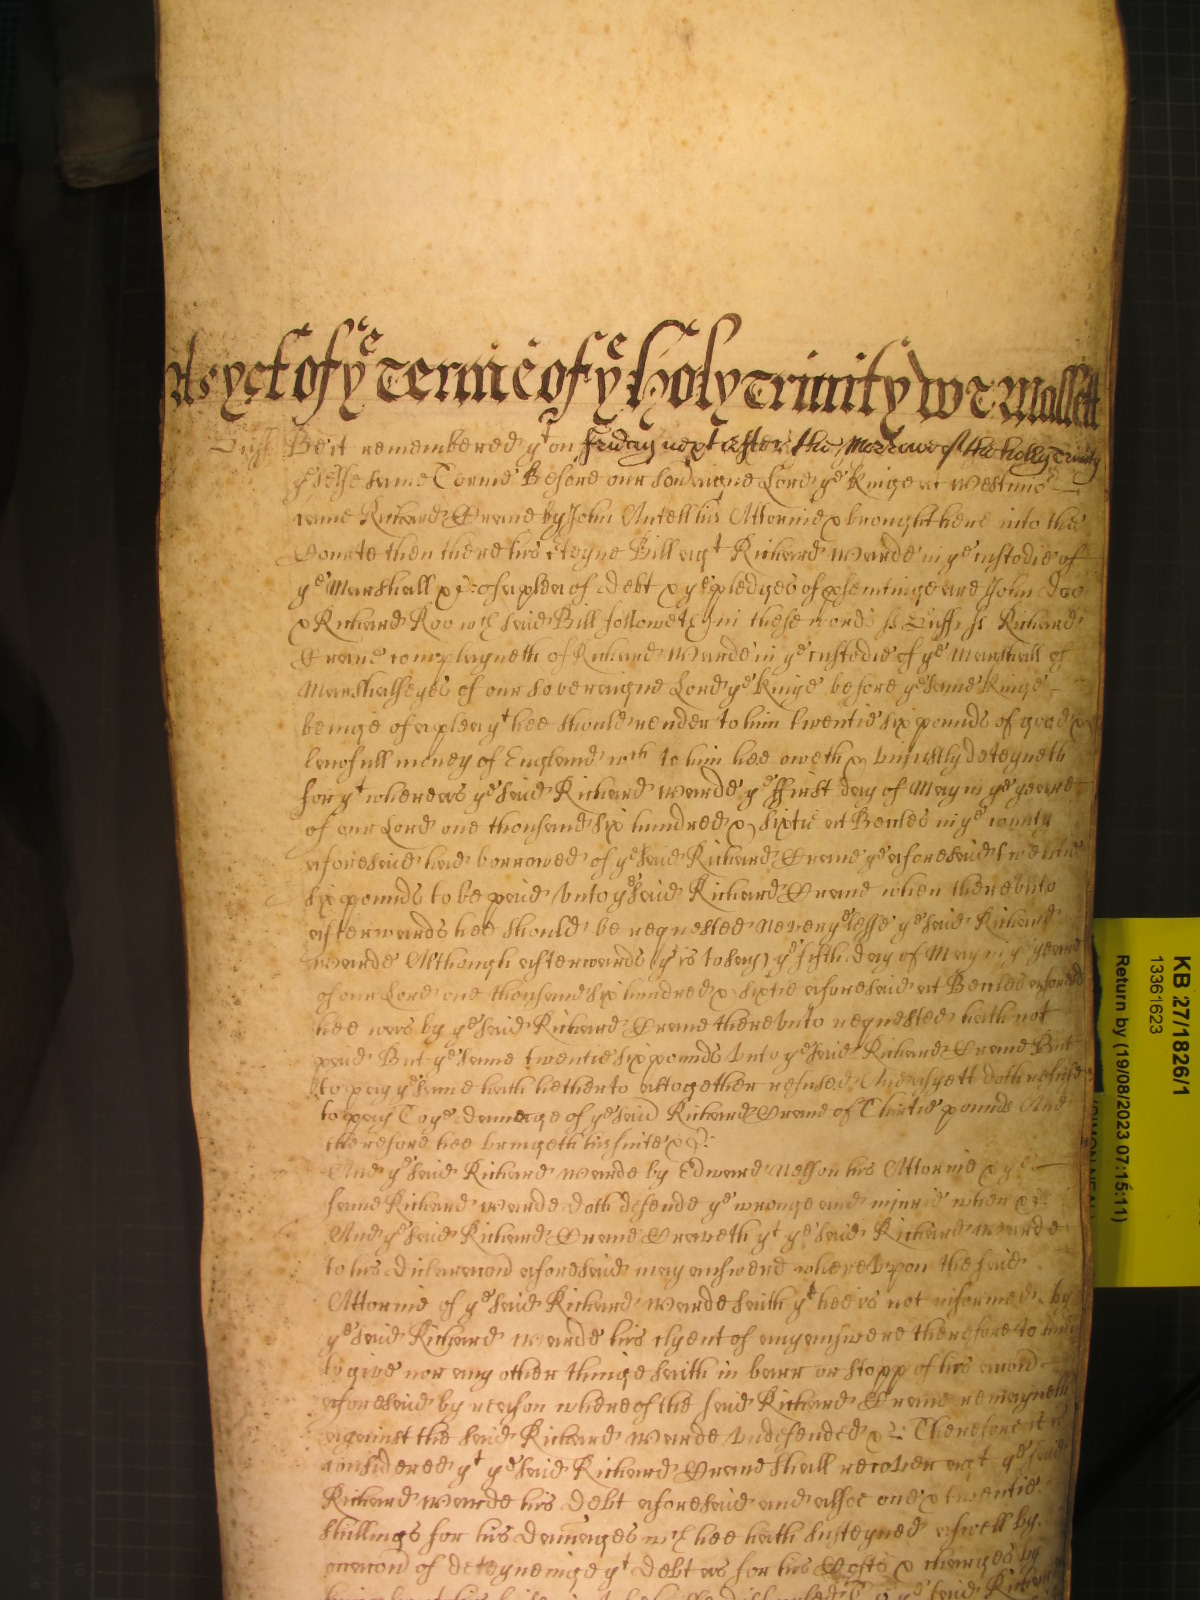 As yet of yͤ Terme of yͤ holy Trinity Wᵗ Mallett
Suff Be it remembered yᵗ on Friday next after the Morrowe of the holly Trinity
yͤ selfe same Terme Before our Sovaigne Lord yͤ Kinge at Westmͬ
came Richard Crane by John Antell his Attornie & brought here into the
Courte then there his cteyne Bill agᵗ Richard Warde in yͤ custodie of
yͤ Marshall &c: of a plea of Debt & yͤ pledges of psentinge are John Doo
& Richard Roo wᶜʰ said Bill followeth in these words ss Suff ss Richard
Crane complayneth of Richard Warde in yͤ custodie of yͤ Marshall of
Marshalseyes of our Soveraigne Lord yͤ Kinge before yͤ same Kinge
beinge of a plea yᵗ hee should render to him twentie six pounds of good &
lawfull money of England wᶜʰ to him hee oweth & uniustly deteyneth
for yᵗ whereas yͤ said Richard Warde yͤ ffirst day of May in yͤ yeare
of our Lord one thousand six hundred & sixtie at Becles in yͤ county
aforesaid had borrowed of yͤ said Richard Crane yͤ aforesaid twentie
six pounds to be paid unto yͤ said Richard Crane when thereunto
afterwards hee should be requested Neveryͤlesse yͤ said Richard
Warde Although afterwards (yᵗ is to say) yͤ fifth day of May in yͤ yeare
of our Lord one thousand six hundred & sixtie aforesaid at Becles aforesd
hee was by yͤ said Richard Crane thereunto requested hath not
paid But yͤ same twentie six pounds unto yͤ said Richard Crane But
to pay yͤ same hath hetherto altogether refused And as yett doth refuse
to pay To yͤ damage of yͤ said Richard Crane of Thirtie pounds And
therefore hee bringeth his suite &c:
And yͤ said Richard Warde by Edward Nelson his Attornie & yͤ
same Richard Warde doth defende yͤ wronge and iniurie when &c:
And yͤ said Richard Crane Craveth yᵗ yͤ said Richard Warde
to his declaracond aforesaid may answere whereupon the said
Attornie of yͤ said Richard Warde saith yᵗ hee is not informed by
yͤ said Richard Warde his clyent of any answere therefore to him
to give nor any other thinge saith in barr or stopp of his accond
aforesaid by reason whereof the said Richard Crane remayneth
against the said Richard Warde undefended &c: Therefore it is
considered yᵗ yͤ said Richard Crane shall recover agᵗ yͤ said
Richard Warde his Debt aforesaid and alsoe one & twentie
shillings for his damages wᶜʰ hee hath susteyned aswell by
occacond of deteyneinge yᵗ debt as for his Costs & charges by
yͤ said Richard
KB 27/1826/1
13361623
Return by (19/08/2023 07:15:11)